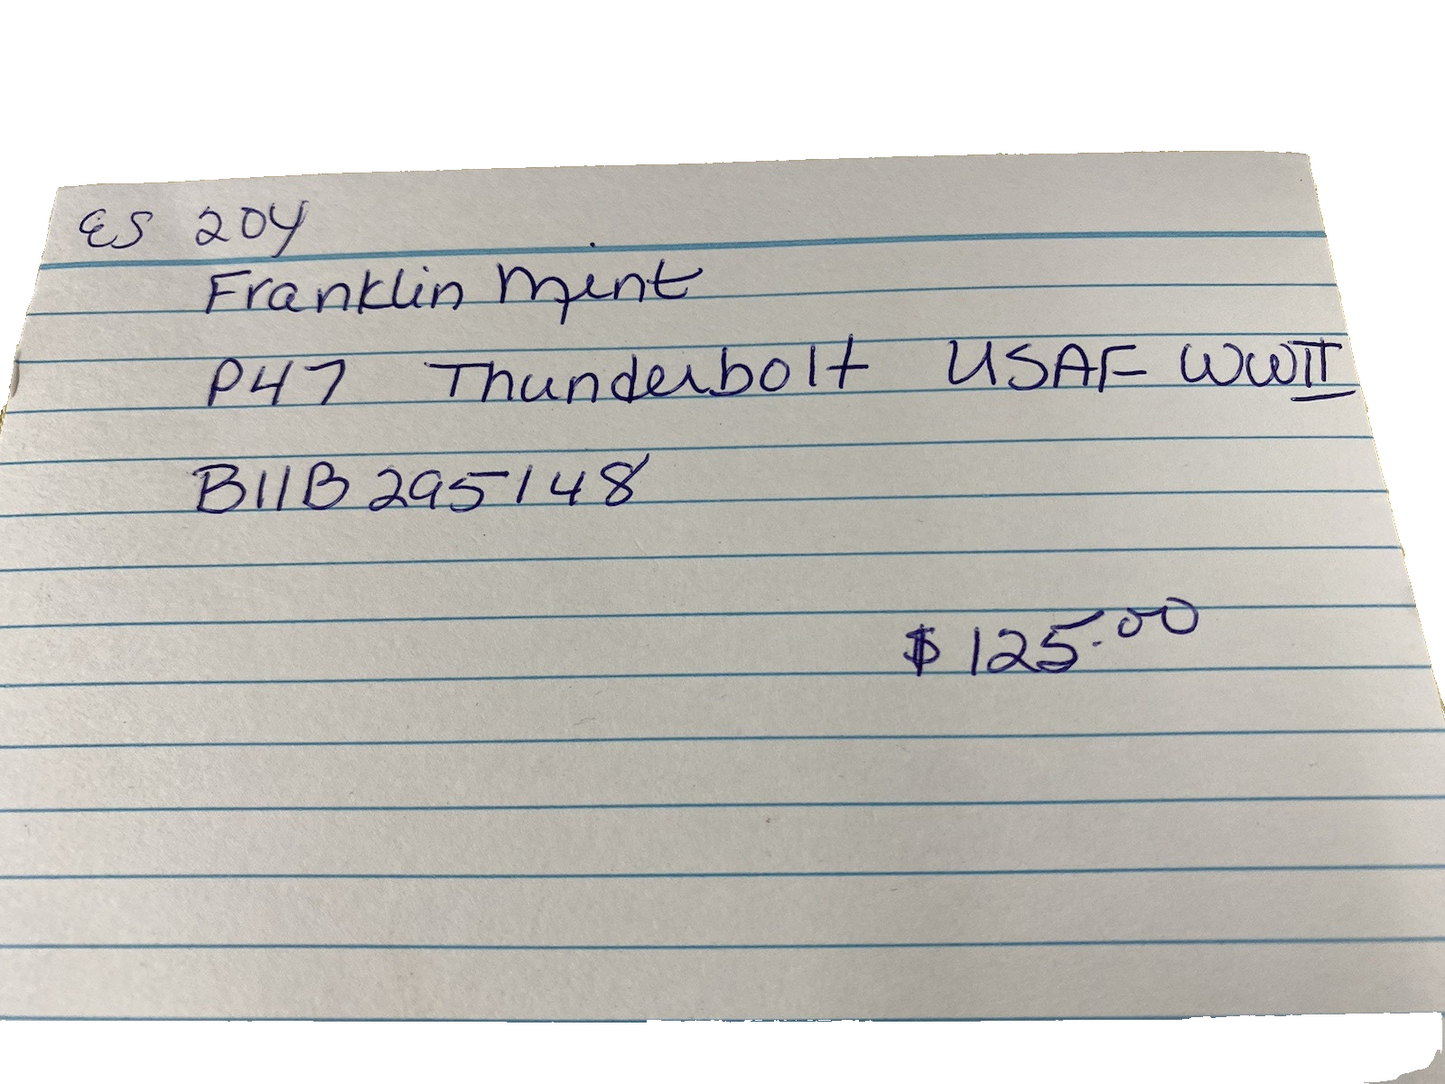 ES 204
Franklin Mint
P47 Thunderbolt USAF WWII
B11B295148
$125.00